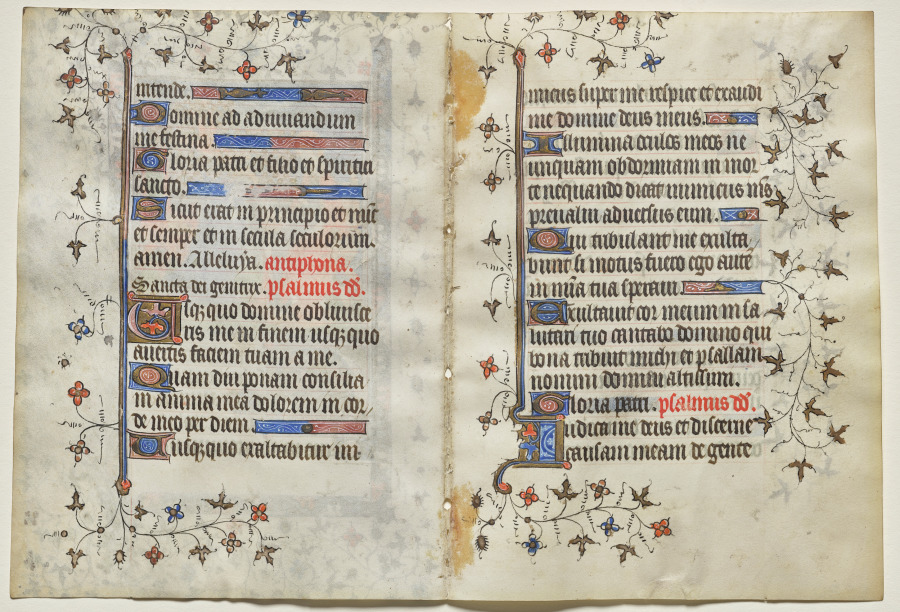 intende.
Domine ad adiuuandum
me festina.
Gloria patri et filio et spiritui
sancto.
Sicut erat in principio et nūc
et semper et in secula seculorum.
amen. Alleluya. antiphona.
Sancta dei genitrix. psalmus dd.
Usqquo domine obliuisce
ris me in finem usqquo
auertis faciem tuam a me.
Quam diu ponam consilia
in anima mea dolorem in cor
de meo per diem.
Usqquo exaltabitur ini
micus super me respice et exaudi
me domine deus meus.
Illumina oculos meos ne
unquam obdormiam in mor
te nequando dicat inimicus m's
preualui aduersus eum.
Qui tribulant me exulta
bunt si motus fuero ego autē
in mīa tua speraui.
Exultauit cor meum in sa
lutari tuo cantabo domino qui
bona tribuit michi et psallam
nomini domini altissimi.
Gloria patri. psalmus dd.
Iudica me deus et discerne
causam meam de gente